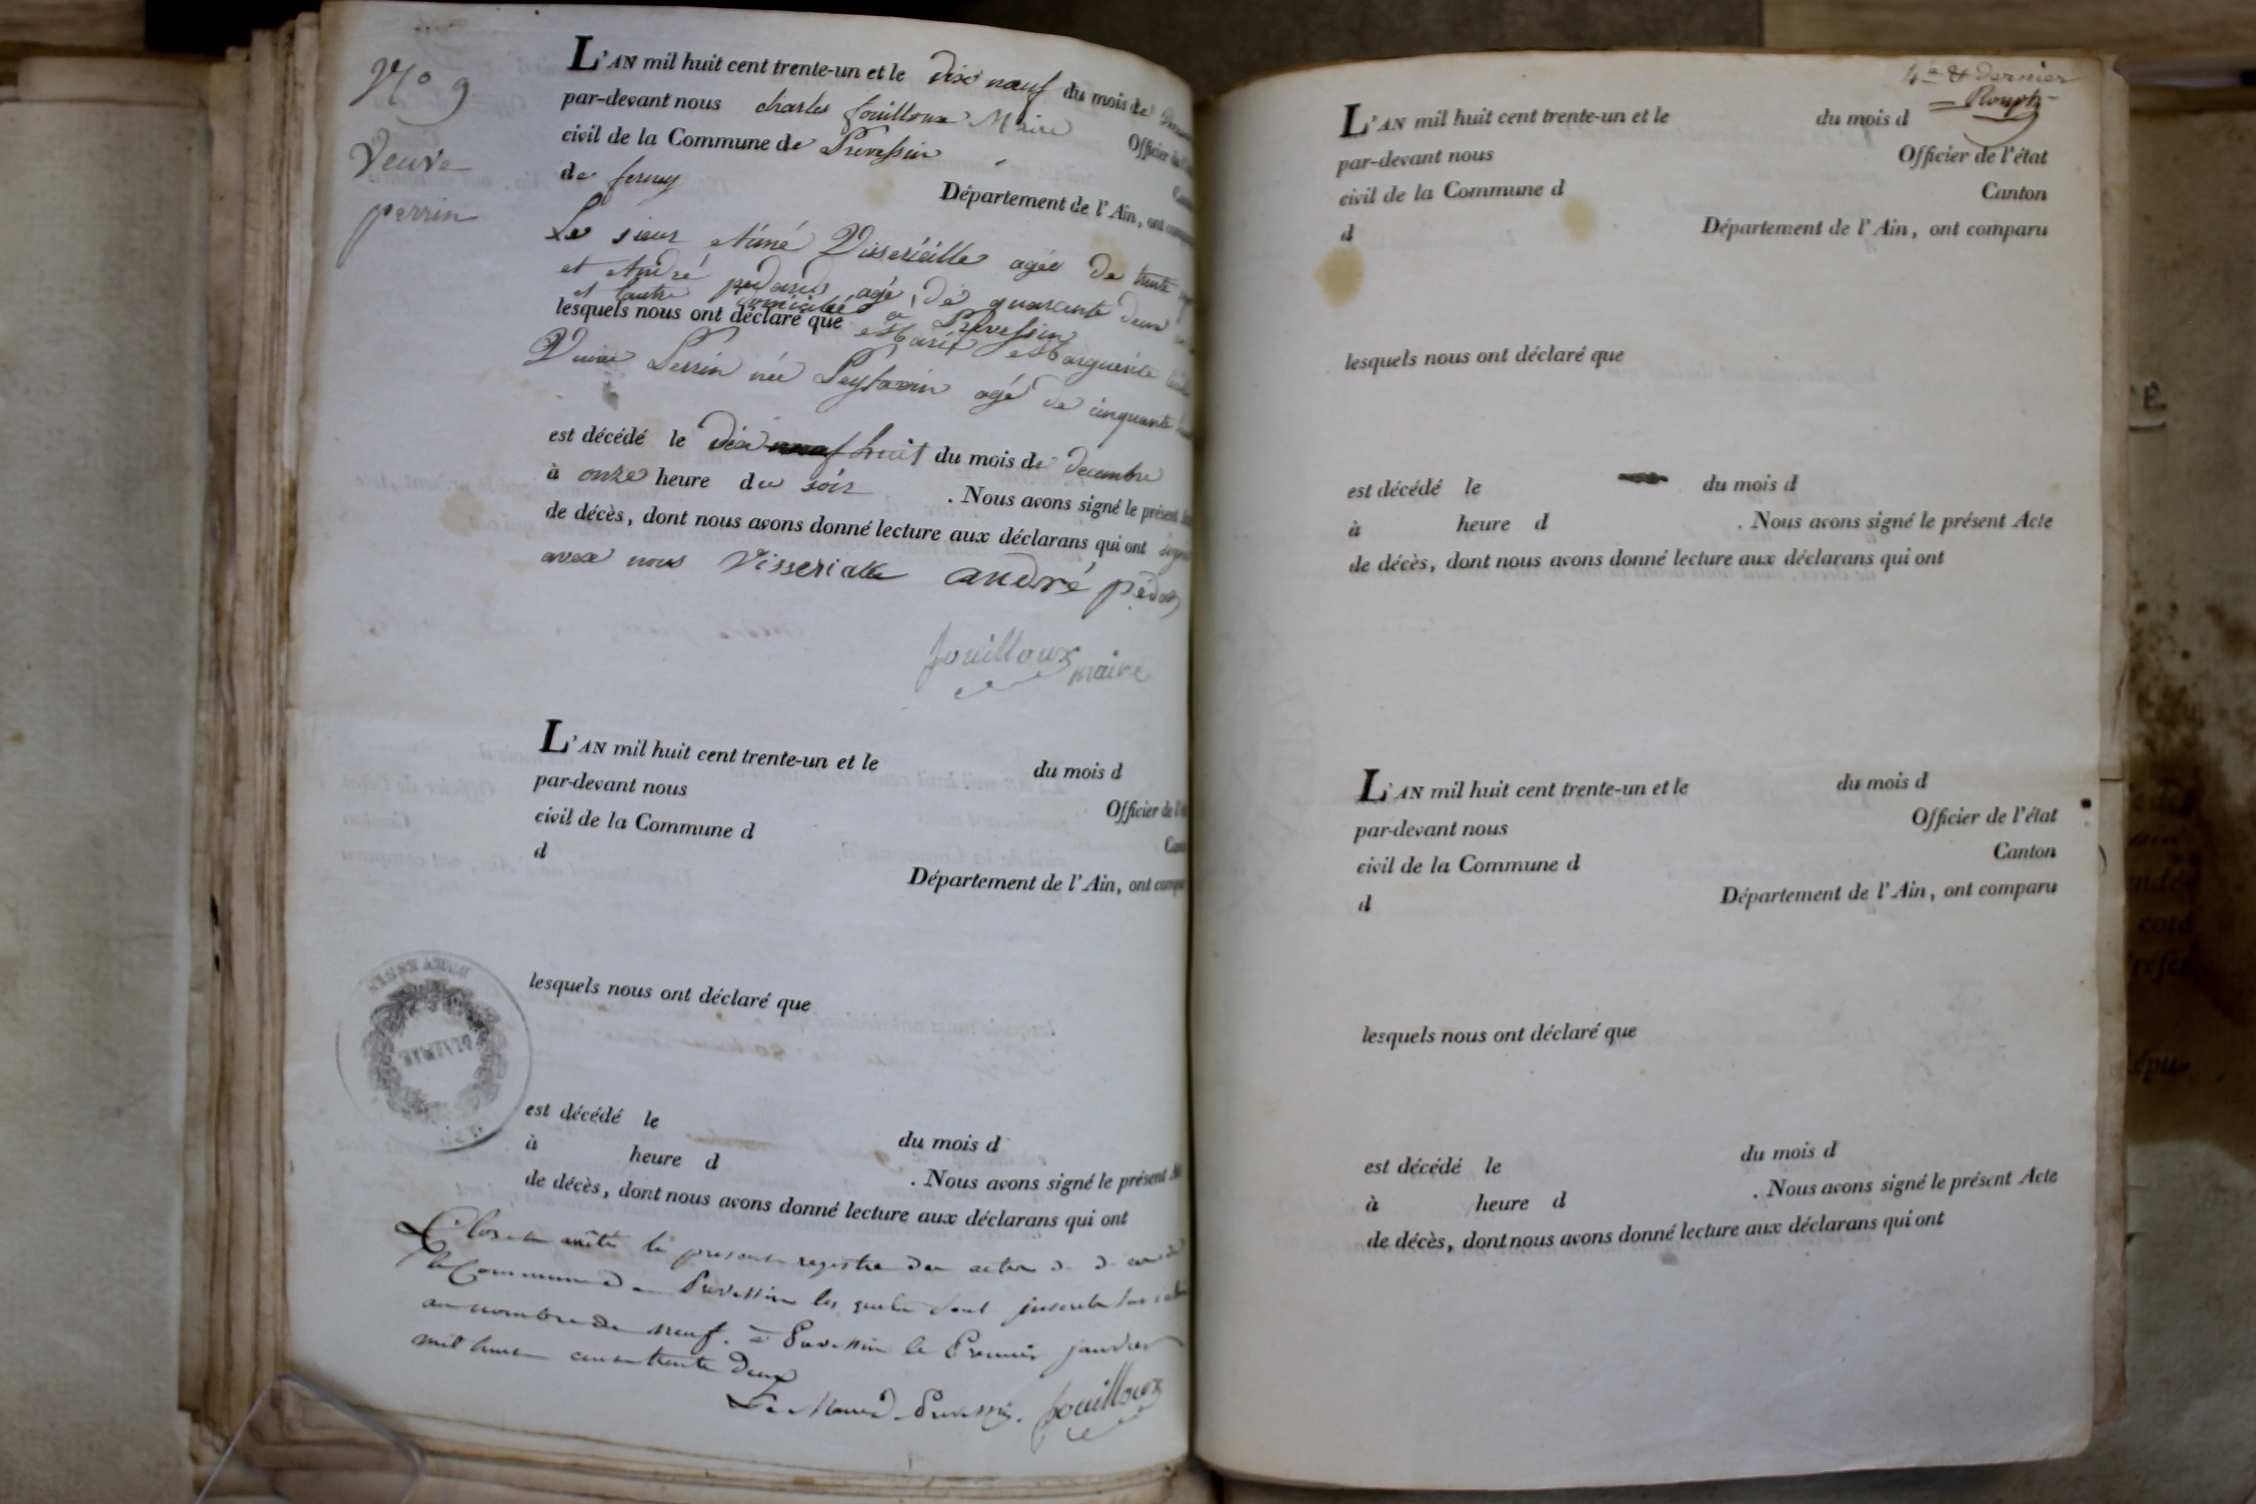 N° 9
Veuve
perrin
L'AN mil huit cent trente-un et le dix neuf du mois de
par-devant nous charles fouilloux Maire Officier de l'
civil de la Commune de Prevessin
de ferney Département de l'Ain, ont
Le sieur Aimé Visserialle agée de trente
et André pedard agé de quarante deux
et l'autre domicilié a Prevessin
lesquels nous ont déclaré que Marie Marguerite
Veuve Perrin née Peytavin agé de cinquante
est décédé le dix neuf huit du mois de decembre
à onze heure du soir . Nous avons signé le présent
de décès, dont nous avons donné lecture aux déclarans qui ont signé
avec nous Visserialle andré
fouilloux
maire
L'AN mil huit cent trente-un et le du mois d
par-devant nous Officier de l'
civil de la Commune d
d Département de l'Ain, ont
lesquels nous ont déclaré que
est décédé le du mois d
à heure d . Nous avons signé le présent
de décès, dont nous avons donné lecture aux déclarans qui ont
Clos et arrêté le present registre des actes de
la Commune de Prevessin les quels sont inscrits
au nombre de neuf. a Prevessin le Premier janvier
mil huit cent trente deux
Le Maire de Prevessin. fouilloux
4e & dernier
L'AN mil huit cent trente-un et le du mois d
par-devant nous Officier de l'état
civil de la Commune d Canton
d Département de l'Ain, ont comparu
lesquels nous ont déclaré que
est décédé le du mois d
à heure d . Nous avons signé le présent Acte
de décès, dont nous avons donné lecture aux déclarans qui ont
L'AN mil huit cent trente-un et le du mois d
par-devant nous Officier de l'état
civil de la Commune d Canton
d Département de l'Ain, ont comparu
lesquels nous ont déclaré que
est décédé le du mois d
à heure d . Nous avons signé le présent Acte
de décès, dont nous avons donné lecture aux déclarans qui ont